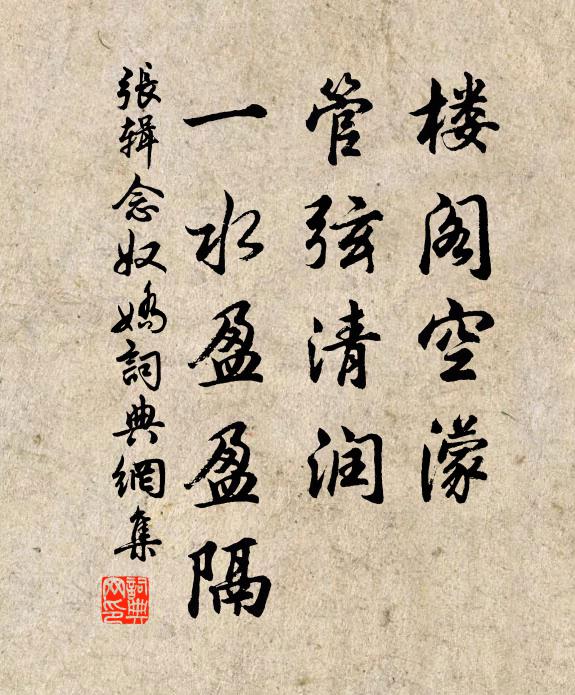 楼阁空濛
管弦清润
一水盈盈隔
張輯念奴嬌詞典網集
詞典网印